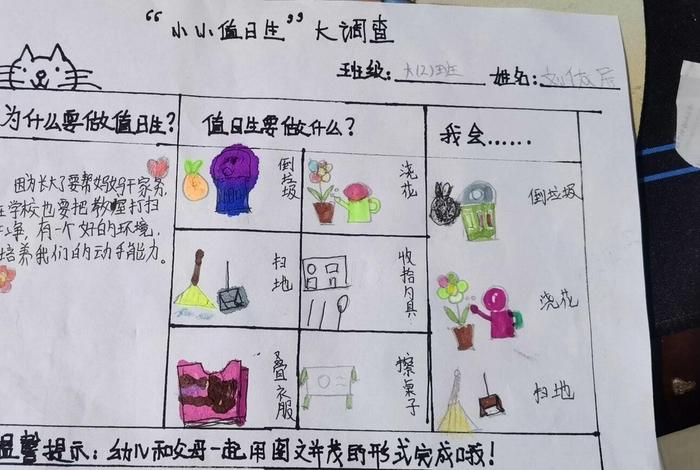 “小小值日生”大调查
班级：大(2)班 姓名：
为什么要做值日生？
值日生要做什么？
我会……
因为长大了要帮妈妈干家务，
在学校也要把教室打扫
干净，有一个好的环境，
培养我们的动手能力。
倒垃圾
浇花
扫地
收拾
叠衣服
擦桌子
倒垃圾
浇花
扫地
温馨提示：幼儿和父母一起用图文并茂的形式完成哦！